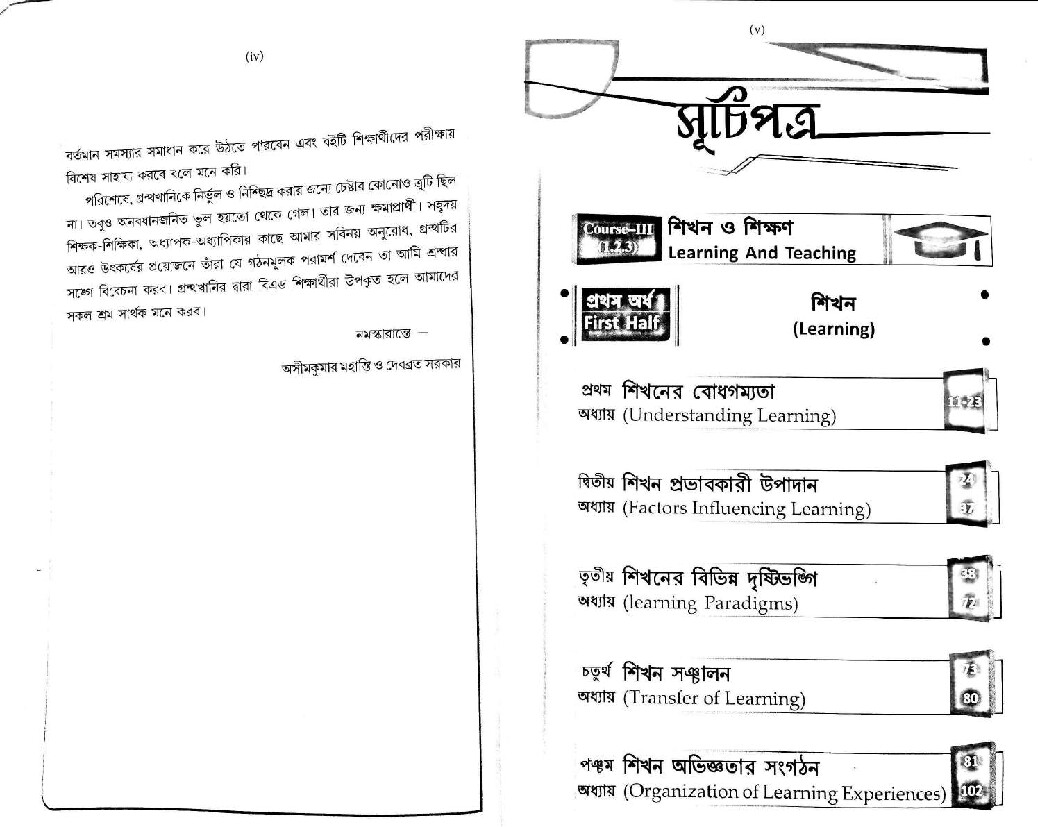 (iv)
বর্তমান সমস্যার সমাধান করে উঠতে পারবেন এবং বইটি শিক্ষার্থীদের পরীক্ষায়
বিশেষ সাহায্য করবে বলে মনে করি।
পরিশেষে, গ্রন্থখানিকে নির্ভুল ও নিশ্ছিদ্র করার জন্যে চেষ্টার কোনোও ত্রুটি ছিল
না। তবুও অনবধানজনিত ভুল হয়তো থেকে গেল। তার জন্য ক্ষমাপ্রার্থী। সহৃদয়
শিক্ষক-শিক্ষিকা, অধ্যাপক-অধ্যাপিকার কাছে আমার সবিনয় অনুরোধ, গ্রন্থটির
আরও উৎকর্ষের প্রয়োজনে তাঁরা যে গঠনমূলক পরামর্শ দেবেন তা আমি শ্রদ্ধার
সঙ্গে বিবেচনা করব। গ্রন্থখানির দ্বারা বিএড শিক্ষার্থীরা উপকৃত হলে আমাদের
সকল শ্রম সার্থক মনে করব।
নমস্কারান্তে —
অসীমকুমার মহান্তি ও দেবব্রত সরকার
(v)
সূচিপত্র
Course-III
(1.2.3)
শিখন ও শিক্ষণ
Learning And Teaching
প্রথম অর্ধ
First Half
শিখন
(Learning)
প্রথম শিখনের বোধগম্যতা
অধ্যায় (Understanding Learning)
11-23
দ্বিতীয় শিখন প্রভাবকারী উপাদান
অধ্যায় (Factors Influencing Learning)
24
37
তৃতীয় শিখনের বিভিন্ন দৃষ্টিভঙ্গি
অধ্যায় (learning Paradigms)
38
72
চতুর্থ শিখন সঞ্চালন
অধ্যায় (Transfer of Learning)
73
80
পঞ্চম শিখন অভিজ্ঞতার সংগঠন
অধ্যায় (Organization of Learning Experiences)
81
102